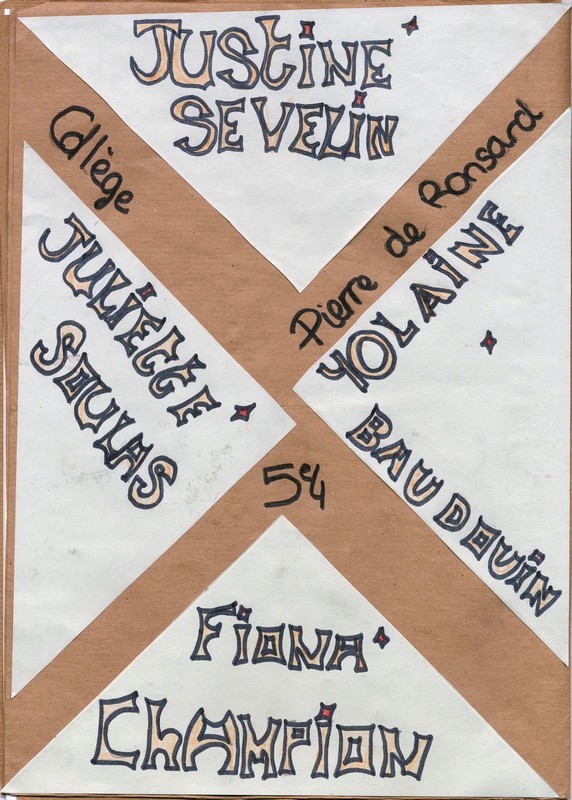 JUSTINE
SEVELIN
Collège
Pierre de Ronsard
JULIETTE
SOULAS
YOLAINE
BAUDOUIN
5e4
FIONA
CHAMPION